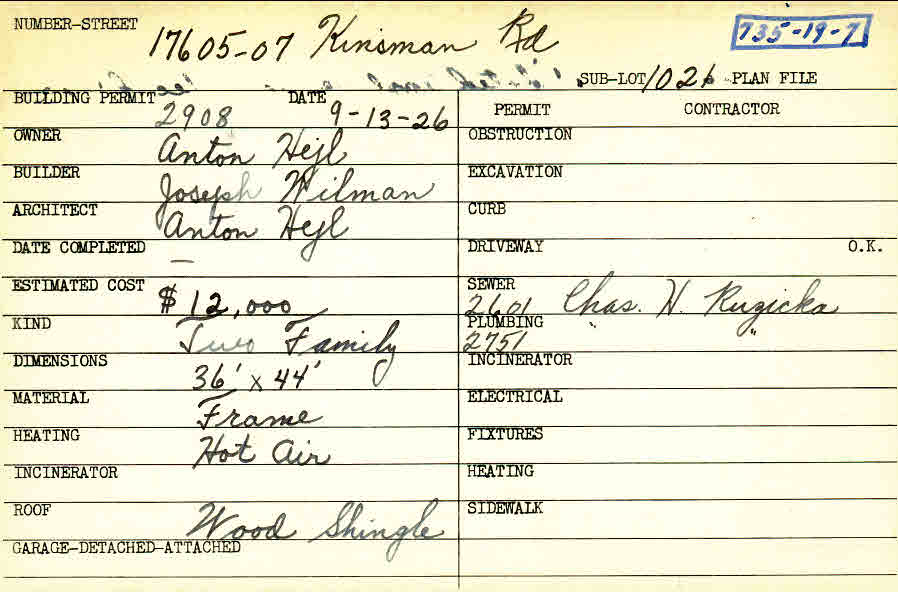 NUMBER-STREET 17605-07 Kinsman Rd 735-19-7
SUB-LOT 1026 PLAN FILE
BUILDING PERMIT 2908 DATE 9-13-26 PERMIT CONTRACTOR
OWNER Anton Hejl OBSTRUCTION
BUILDER Joseph Wilman EXCAVATION
ARCHITECT Anton Hejl CURB
DATE COMPLETED — DRIVEWAY O.K.
ESTIMATED COST $12,000 SEWER 2601 Chas. H. Ruzicka
KIND Two Family PLUMBING 2751 " "
DIMENSIONS 36' x 44' INCINERATOR
MATERIAL Frame ELECTRICAL
HEATING Hot Air FIXTURES
INCINERATOR HEATING
ROOF Wood Shingle SIDEWALK
GARAGE-DETACHED-ATTACHED